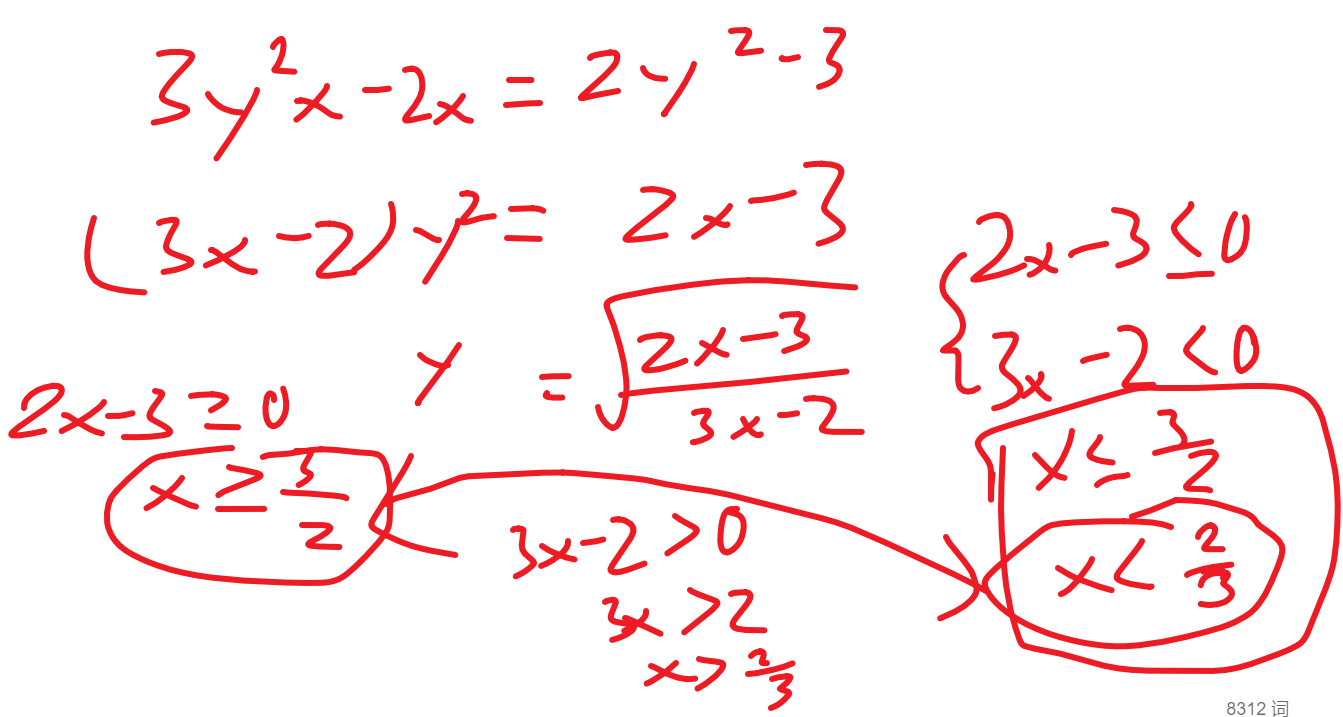 3y²x-2x=2y²-3
(3x-2)y²=2x-3
y=√((2x-3)/(3x-2))
2x-3≥0
x≥3/2
3x-2>0
3x>2
x>2/3
{2x-3≤0
3x-2<0
x≤3/2
x<2/3
8312 词